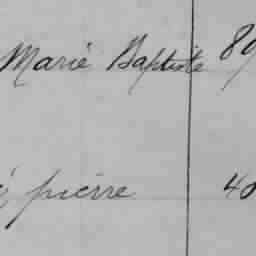 Marie Baptiste 89
pierre 40